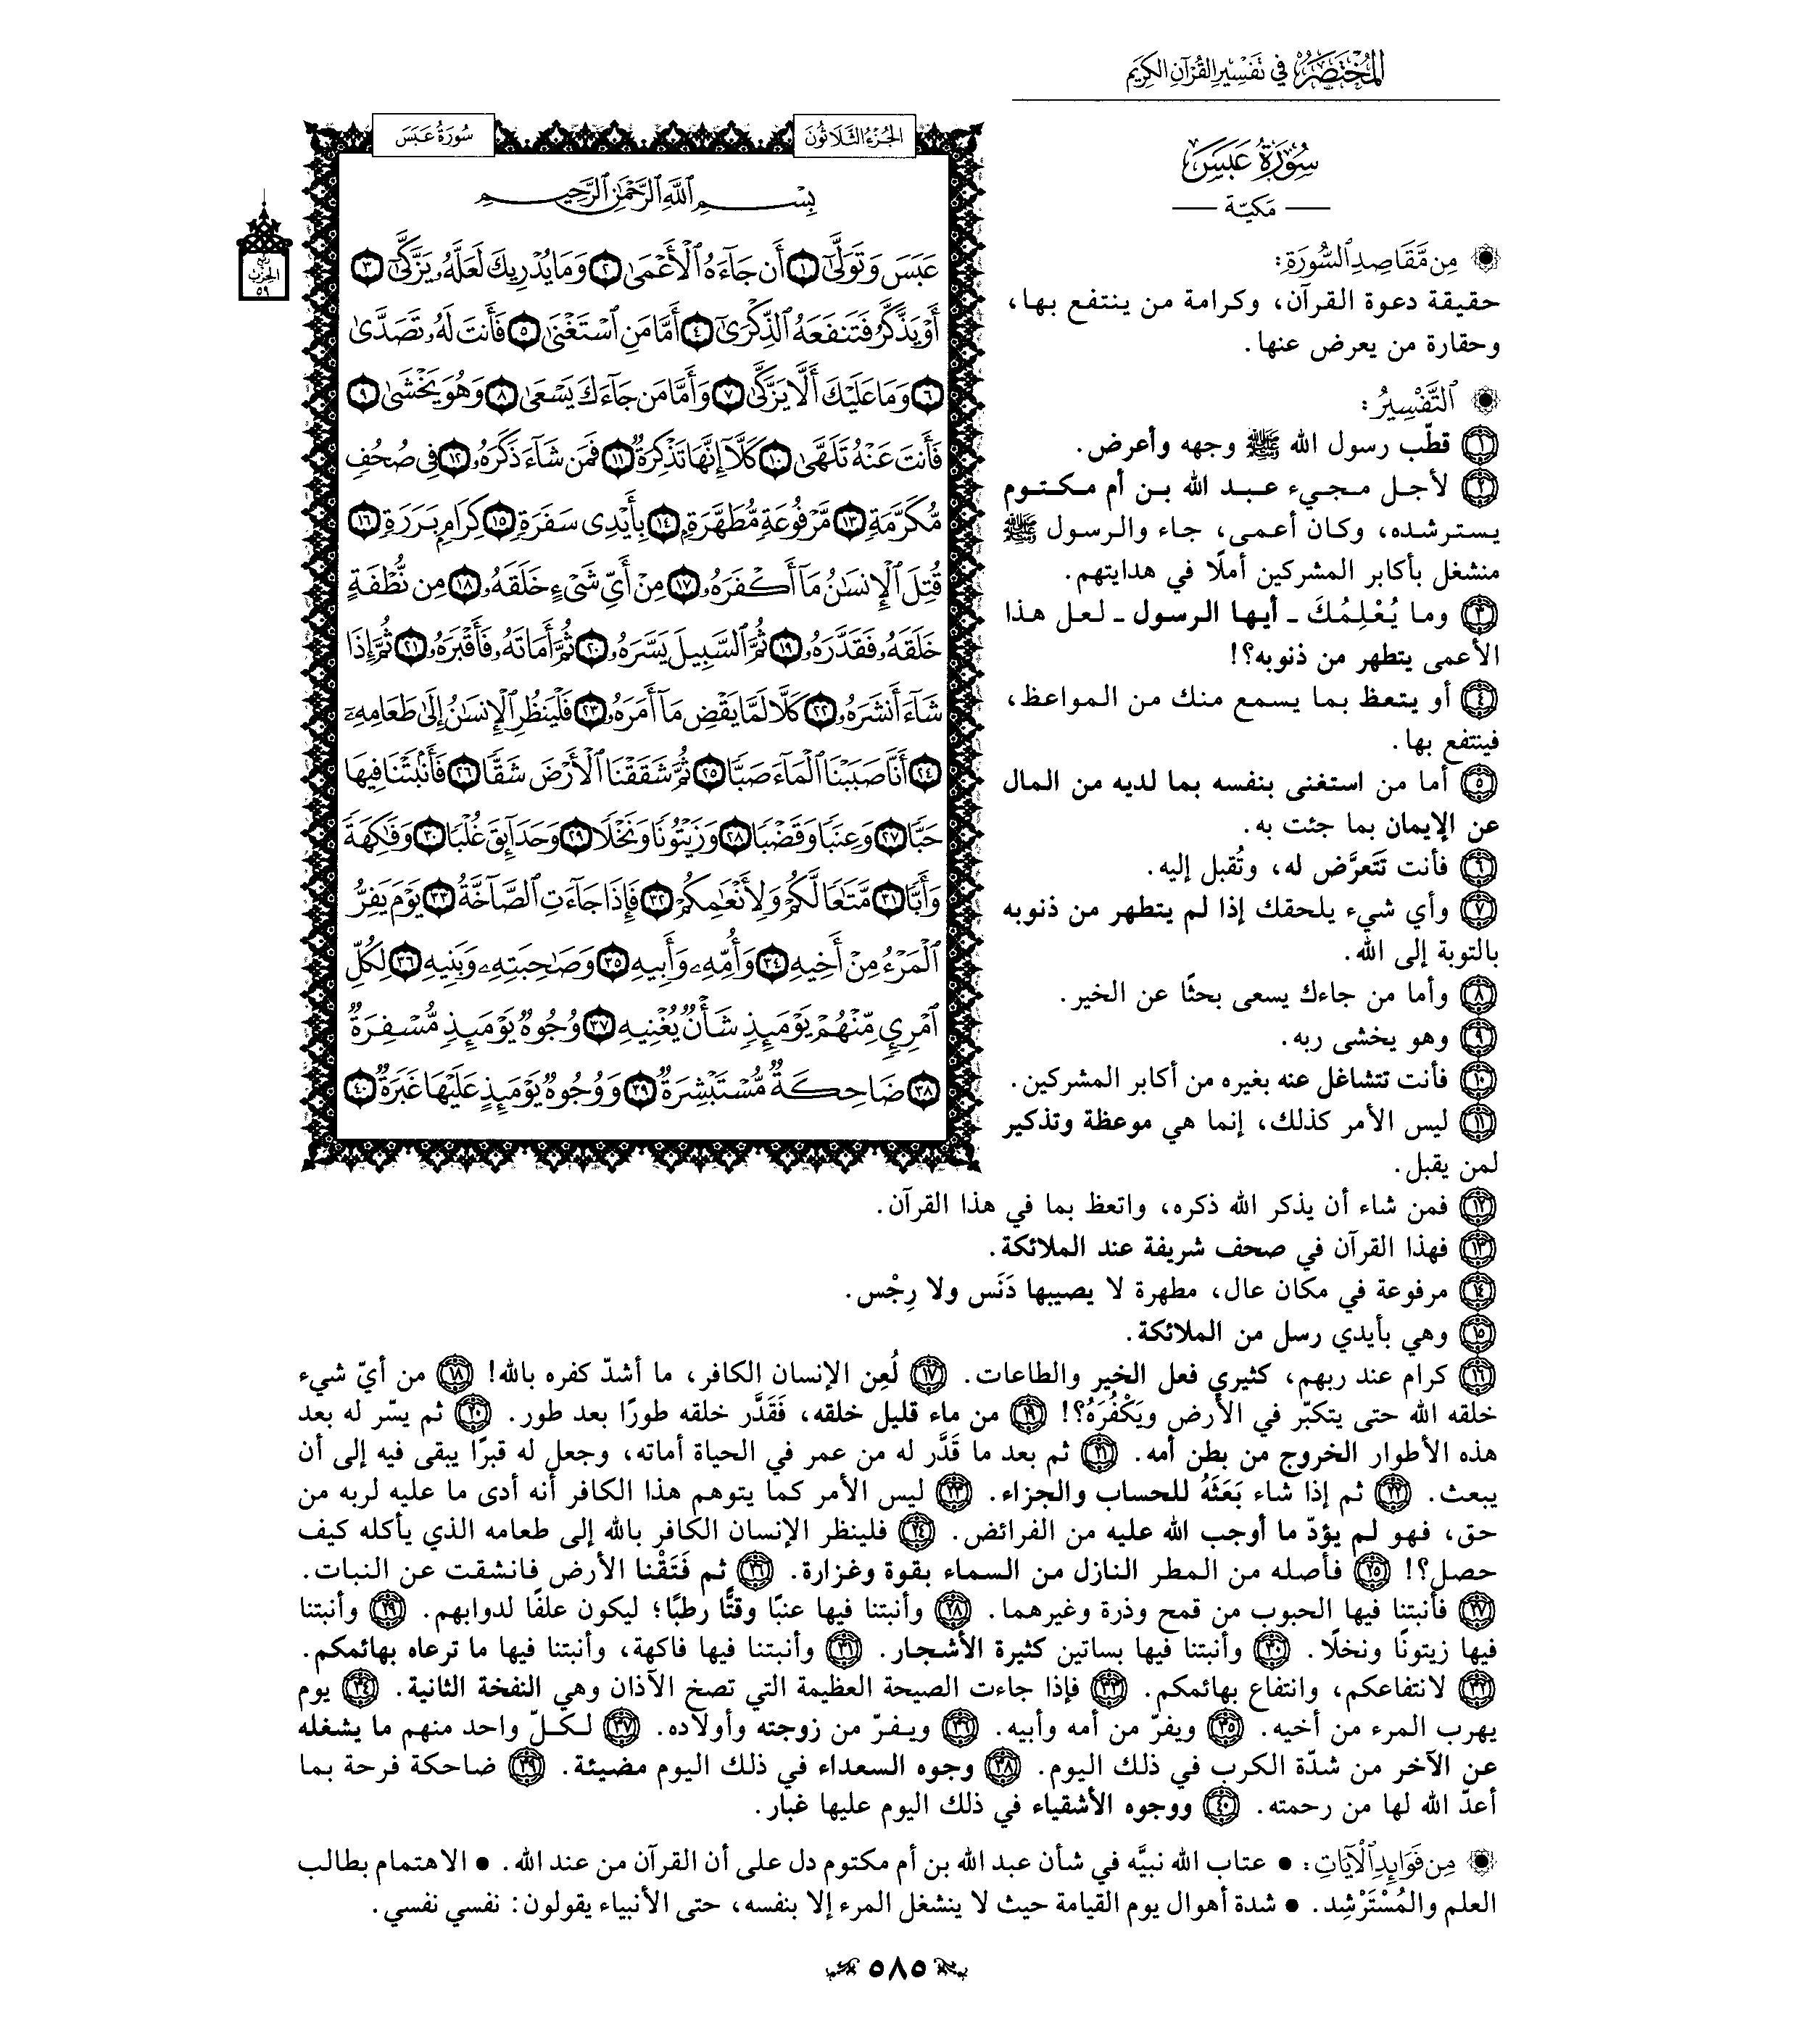 المختصر في تفسير القرآن الكريم
سُورَةُ عَبَسَ
مَكيّة
مِن مَّقَاصِدِ ٱلسُّورَةِ:
حقيقة دعوة القرآن، وكرامة من ينتفع بها،
وحقارة من يعرض عنها.
ٱلتَّفْسِيرُ:
١ قطّب رسول الله ﷺ وجهه وأعرض.
٢ لأجل مجيء عبد الله بن أم مكتوم
يسترشده، وكان أعمى، جاء والرسول ﷺ
منشغل بأكابر المشركين أملًا في هدايتهم.
٣ وما يُعْلِمُكَ ـ أيها الرسول ـ لعل هذا
الأعمى يتطهر من ذنوبه؟!
٤ أو يتعظ بما يسمع منك من المواعظ،
فينتفع بها.
٥ أما من استغنى بنفسه بما لديه من المال
عن الإيمان بما جئت به.
٦ فأنت تَتَعرَّض له، وتُقبل إليه.
٧ وأي شيء يلحقك إذا لم يتطهر من ذنوبه
بالتوبة إلى الله.
٨ وأما من جاءك يسعى بحثًا عن الخير.
٩ وهو يخشى ربه.
١٠ فأنت تتشاغل عنه بغيره من أكابر المشركين.
١١ ليس الأمر كذلك، إنما هي موعظة وتذكير
لمن يقبل.
سُورَةُ عَبَسَ
الجُزْءُ الثَّلَاثُونَ
ربع
الحزب
٥٩
بِسْمِ ٱللَّهِ ٱلرَّحْمَٰنِ ٱلرَّحِيمِ
عَبَسَ وَتَوَلَّىٰٓ ١ أَن جَآءَهُ ٱلْأَعْمَىٰ ٢ وَمَا يُدْرِيكَ لَعَلَّهُۥ يَزَّكَّىٰٓ ٣
أَوْ يَذَّكَّرُ فَتَنفَعَهُ ٱلذِّكْرَىٰٓ ٤ أَمَّا مَنِ ٱسْتَغْنَىٰ ٥ فَأَنتَ لَهُۥ تَصَدَّىٰ
٦ وَمَا عَلَيْكَ أَلَّا يَزَّكَّىٰ ٧ وَأَمَّا مَن جَآءَكَ يَسْعَىٰ ٨ وَهُوَ يَخْشَىٰ ٩
فَأَنتَ عَنْهُ تَلَهَّىٰ ١٠ كَلَّآ إِنَّهَا تَذْكِرَةٌ ١١ فَمَن شَآءَ ذَكَرَهُۥ ١٢ فِى صُحُفٍ
مُّكَرَّمَةٍ ١٣ مَّرْفُوعَةٍ مُّطَهَّرَةٍۭ ١٤ بِأَيْدِى سَفَرَةٍ ١٥ كِرَامٍۭ بَرَرَةٍ ١٦
قُتِلَ ٱلْإِنسَٰنُ مَآ أَكْفَرَهُۥ ١٧ مِنْ أَىِّ شَىْءٍ خَلَقَهُۥ ١٨ مِن نُّطْفَةٍ
خَلَقَهُۥ فَقَدَّرَهُۥ ١٩ ثُمَّ ٱلسَّبِيلَ يَسَّرَهُۥ ٢٠ ثُمَّ أَمَاتَهُۥ فَأَقْبَرَهُۥ ٢١ ثُمَّ إِذَا
شَآءَ أَنشَرَهُۥ ٢٢ كَلَّا لَمَّا يَقْضِ مَآ أَمَرَهُۥ ٢٣ فَلْيَنظُرِ ٱلْإِنسَٰنُ إِلَىٰ طَعَامِهِۦٓ
٢٤ أَنَّا صَبَبْنَا ٱلْمَآءَ صَبًّا ٢٥ ثُمَّ شَقَقْنَا ٱلْأَرْضَ شَقًّا ٢٦ فَأَنۢبَتْنَا فِيهَا
حَبًّا ٢٧ وَعِنَبًا وَقَضْبًا ٢٨ وَزَيْتُونًا وَنَخْلًا ٢٩ وَحَدَآئِقَ غُلْبًا ٣٠ وَفَٰكِهَةً
وَأَبًّا ٣١ مَّتَٰعًا لَّكُمْ وَلِأَنْعَٰمِكُمْ ٣٢ فَإِذَا جَآءَتِ ٱلصَّآخَّةُ ٣٣ يَوْمَ يَفِرُّ
ٱلْمَرْءُ مِنْ أَخِيهِ ٣٤ وَأُمِّهِۦ وَأَبِيهِ ٣٥ وَصَٰحِبَتِهِۦ وَبَنِيهِ ٣٦ لِكُلِّ
ٱمْرِئٍ مِّنْهُمْ يَوْمَئِذٍ شَأْنٌ يُغْنِيهِ ٣٧ وُجُوهٌ يَوْمَئِذٍ مُّسْفِرَةٌ
٣٨ ضَاحِكَةٌ مُّسْتَبْشِرَةٌ ٣٩ وَوُجُوهٌ يَوْمَئِذٍ عَلَيْهَا غَبَرَةٌ ٤٠
١٢ فمن شاء أن يذكر الله ذكره، واتعظ بما في هذا القرآن.
١٣ فهذا القرآن في صحف شريفة عند الملائكة.
١٤ مرفوعة في مكان عال، مطهرة لا يصيبها دَنَس ولا رِجْس.
١٥ وهي بأيدي رسل من الملائكة.
١٦ كرام عند ربهم، كثيري فعل الخير والطاعات. ١٧ لُعِن الإنسان الكافر، ما أشدّ كفره بالله! ١٨ من أيّ شيء
خلقه الله حتى يتكبّر في الأرض ويَكْفُرَهُ؟! ١٩ من ماء قليل خلقه، فَقَدَّر خلقه طورًا بعد طور. ٢٠ ثم يسّر له بعد
هذه الأطوار الخروج من بطن أمه. ٢١ ثم بعد ما قَدَّر له من عمر في الحياة أماته، وجعل له قبرًا يبقى فيه إلى أن
يبعث. ٢٢ ثم إذا شاء بَعَثَهُ للحساب والجزاء. ٢٣ ليس الأمر كما يتوهم هذا الكافر أنه أدى ما عليه لربه من
حق، فهو لم يؤدّ ما أوجب الله عليه من الفرائض. ٢٤ فلينظر الإنسان الكافر بالله إلى طعامه الذي يأكله كيف
حصل؟! ٢٥ فأصله من المطر النازل من السماء بقوة وغزارة. ٢٦ ثم فَتَقْنا الأرض فانشقت عن النبات.
٢٧ فأنبتنا فيها الحبوب من قمح وذرة وغيرهما. ٢٨ وأنبتنا فيها عنبًا وقتًّا رطبًا؛ ليكون علفًا لدوابهم. ٢٩ وأنبتنا
فيها زيتونًا ونخلًا. ٣٠ وأنبتنا فيها بساتين كثيرة الأشجار. ٣١ وأنبتنا فيها فاكهة، وأنبتنا فيها ما ترعاه بهائمكم.
٣٢ لانتفاعكم، وانتفاع بهائمكم. ٣٣ فإذا جاءت الصيحة العظيمة التي تصخ الآذان وهي النفخة الثانية. ٣٤ يوم
يهرب المرء من أخيه. ٣٥ ويفرّ من أمه وأبيه. ٣٦ ويفرّ من زوجته وأولاده. ٣٧ لكلّ واحد منهم ما يشغله
عن الآخر من شدّة الكرب في ذلك اليوم. ٣٨ وجوه السعداء في ذلك اليوم مضيئة. ٣٩ ضاحكة فرحة بما
أعدّ الله لها من رحمته. ٤٠ ووجوه الأشقياء في ذلك اليوم عليها غبار.
مِن فَوَائِدِ ٱلْآيَاتِ: • عتاب الله نبيَّه في شأن عبد الله بن أم مكتوم دل على أن القرآن من عند الله. • الاهتمام بطالب
العلم والمُسْتَرْشِد. • شدة أهوال يوم القيامة حيث لا ينشغل المرء إلا بنفسه، حتى الأنبياء يقولون: نفسي نفسي.
٥٨٥